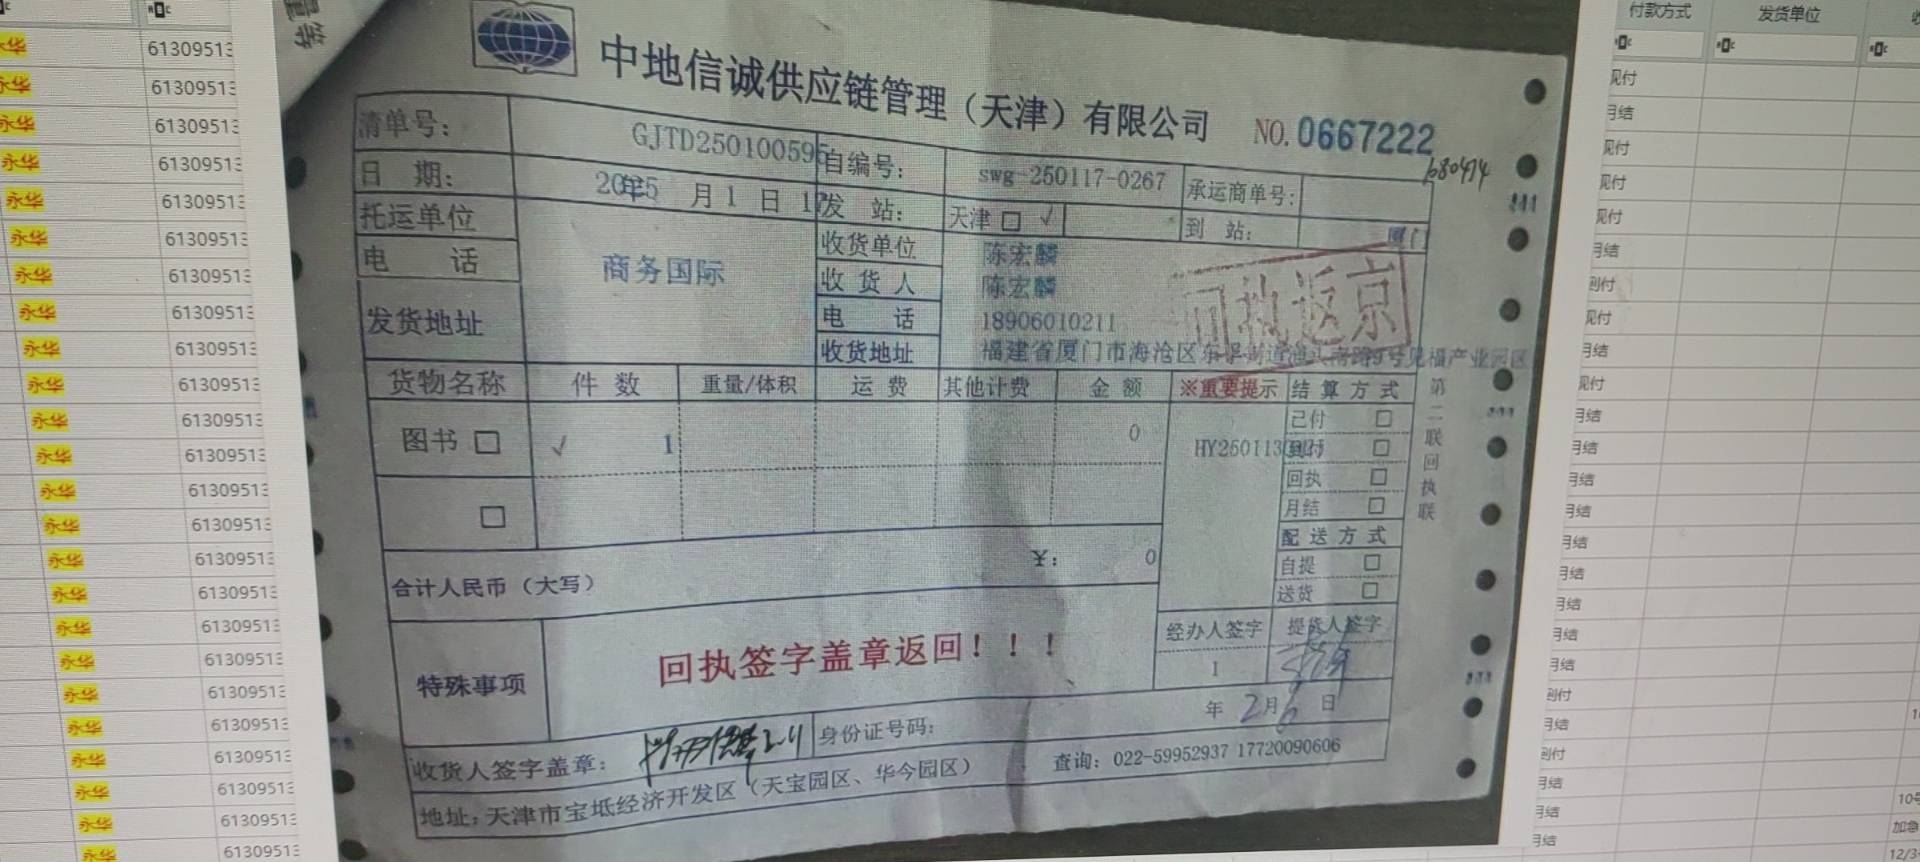 中地信诚供应链管理（天津）有限公司 NO. 0667222
680474
清单号： GJTD250100595 自编号： swg-250117-0267 承运商单号：
日 期： 2025 年 月 1 日 17 发 站： 天津 □ √ 到 站： 厦门
托运单位 商务国际 收货单位 陈宏麟
电 话 收 货 人 陈宏麟
电 话 18906010211
发货地址 收货地址 福建省厦门市海沧区东孚街道
回执返京
货物名称 件 数 重量/体积 运 费 其他计费 金 额 ※重要提示 结 算 方 式
图书 □ √ 1 0 HY250113 已付 □
到付 □
回执 □
□ 月结 □
配 送 方 式
合计人民币（大写） ¥： 0 自提 □
送货 □
第二联回执联
特殊事项 回执签字盖章返回！！！ 经办人签字 提货人签字
1
年 2月6日
收货人签字盖章： 身份证号码：
地址：天津市宝坻经济开发区（天宝园区、华今园区） 查询：022-59952937 17720090606
付款方式 发货单位
永华 61309513
永华 61309513
永华 61309513
永华 61309513
永华 61309513
永华 61309513
永华 61309513
永华 61309513
永华 61309513
永华 61309513
永华 61309513
永华 61309513
永华 61309513
永华 61309513
永华 61309513
永华 61309513
永华 61309513
永华 61309513
永华 61309513
永华 61309513
永华 61309513
永华 61309513
永华 61309513
永华 61309513
现付
月结
现付
现付
现付
月结
到付
现付
月结
现付
月结
月结
月结
月结
月结
月结
月结
月结
月结
到付
月结
到付
月结
月结
月结
加急